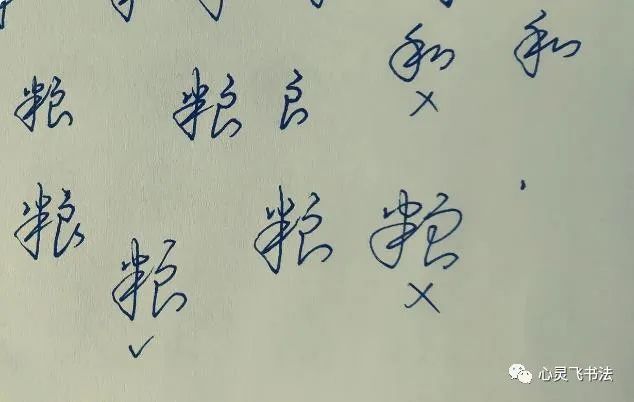 和 和
粮 粮 良
×
粮 粮 粮
粮 ×
✓
心灵飞书法